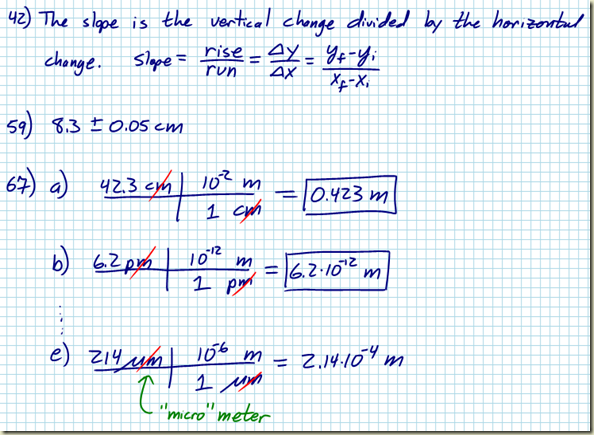 42) The slope is the vertical change divided by the horizontal
change. Slope = rise/run = Δy/Δx = (y_f - y_i)/(x_f - x_i)
59) 8.3 ± 0.05 cm
67) a) 42.3 cm | 10^-2 m / 1 cm = 0.423 m
b) 6.2 pm | 10^-12 m / 1 pm = 6.2·10^-12 m
e) 214 μm | 10^-6 m / 1 μm = 2.14·10^-4 m
"micro" meter